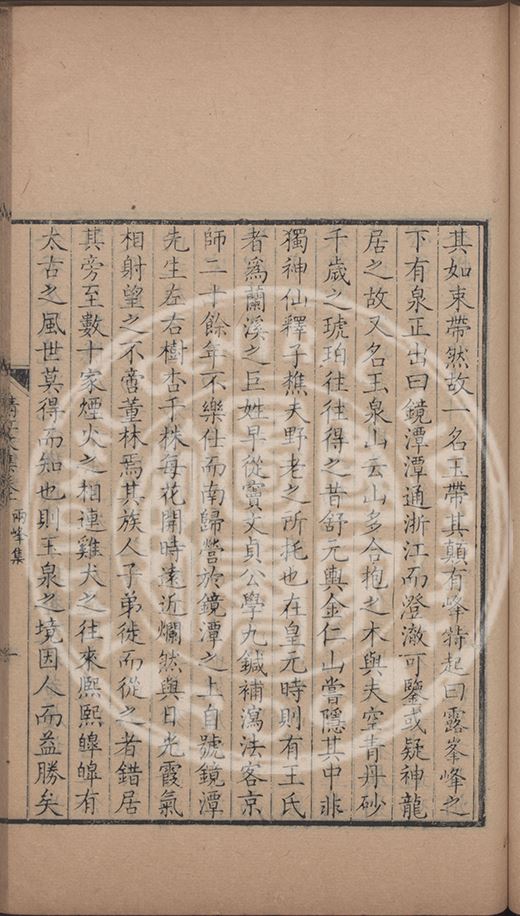 其如束帶然故一名玉帶其顛有峰特起曰露峯峰之
下有泉正出曰鏡潭潭通浙江而澄澈可鑒或疑神龍
居之故又名玉泉山云山多合抱之木與夫空青丹砂
千歲之琥珀往往得之昔舒元輿金仁山嘗隱其中非
獨神仙釋子樵夫野老之所托也在皇元時則有王氏
者爲蘭溪之巨姓早從竇文貞公學九鍼補瀉法客京
師二十餘年不樂仕而南歸營於鏡潭之上自號鏡潭
先生左右樹杏千株每花開時遠近爛然與日光霞氣
相射望之不啻董林焉其族人子弟徙而從之者錯居
其旁至數十家煙火之相連雞犬之往來熙熙皞皞有
太古之風世莫得而知也則玉泉之境因人而益勝矣
清江文集卷
兩峰集